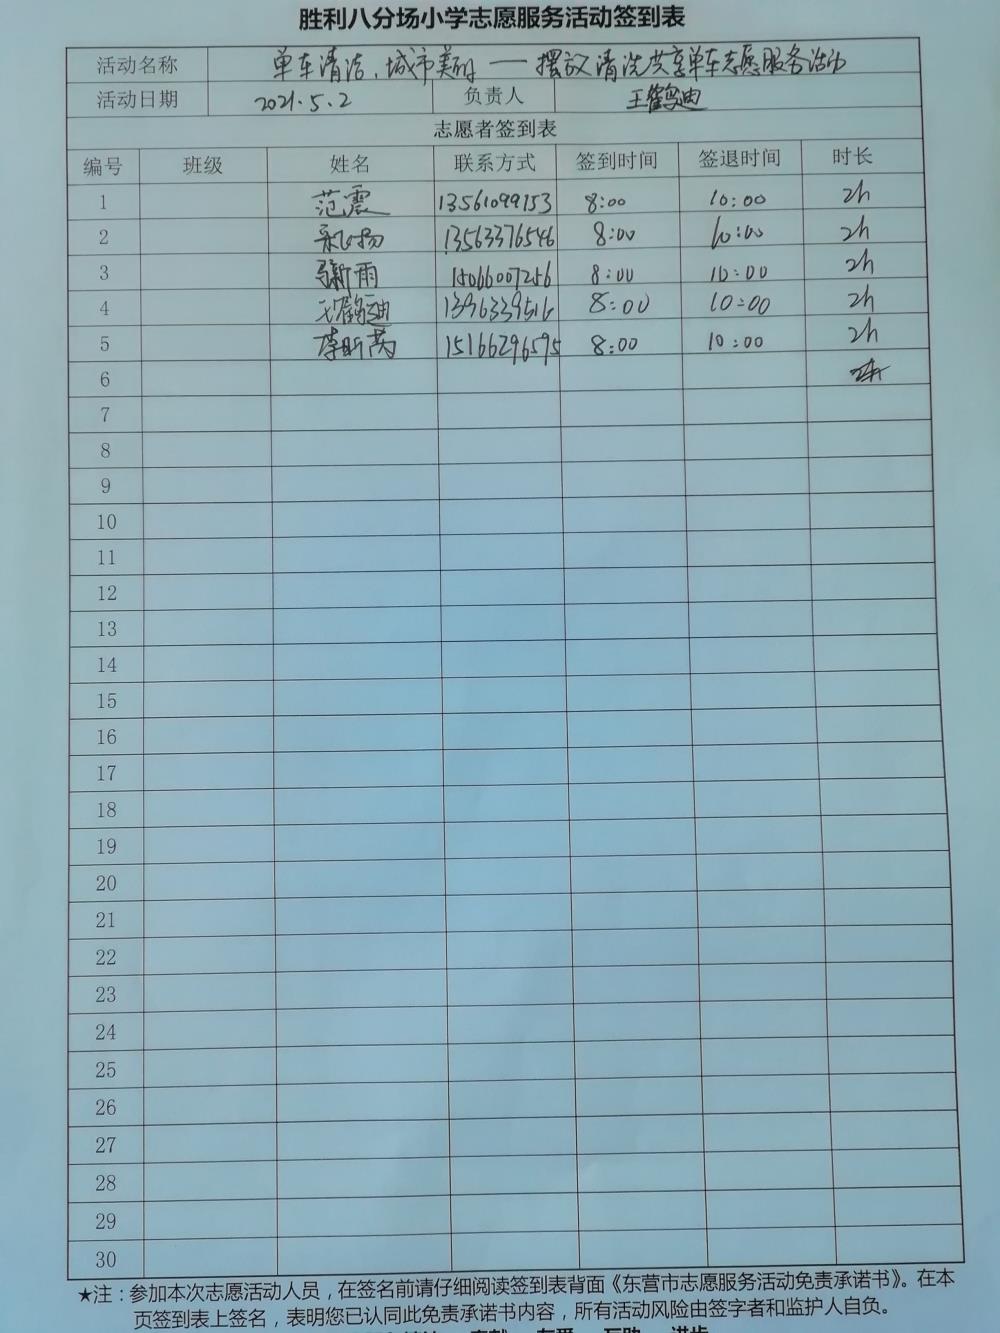 胜利八分场小学志愿服务活动签到表
活动名称 单车清洁、城市美丽——摆放清洗共享单车志愿服务活动
活动日期 2021.5.2 负责人 王鹤迪
志愿者签到表
编号 班级 姓名 联系方式 签到时间 签退时间 时长
1 范震 13561099153 8:00 10:00 2h
2 13563376546 8:00 10:00 2h
3 15066007256 8:00 10:00 2h
4 王鹤迪 1396339516 8:00 10:00 2h
5 李昕芮 15166296595 8:00 10:00 2h
6
7
8
9
10
11
12
13
14
15
16
17
18
19
20
21
22
23
24
25
26
27
28
29
30
★注：参加本次志愿活动人员，在签名前请仔细阅读签到表背面《东营市志愿服务活动免责承诺书》。在本
页签到表上签名，表明您已认同此免责承诺书内容，所有活动风险由签字者和监护人自负。
奉献 友爱 互助 进步